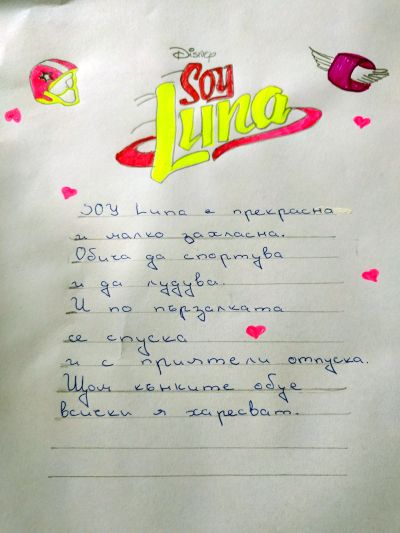 Disney
SOY
Luna
SOY Luna е прекрасна
и малко захласна.
Обича да спортува
и да лудува.
И по пързалката
се спуска
и с приятели отпуска.
Щом кънките обуе
всички я харесват.